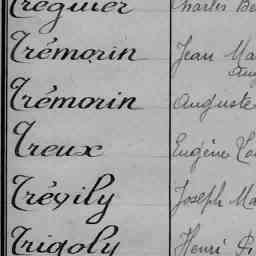 Tréguier Charles
Trémorin Jean
Trémorin Auguste
Treux Eugène
Trévily Joseph
Trigoly Henri